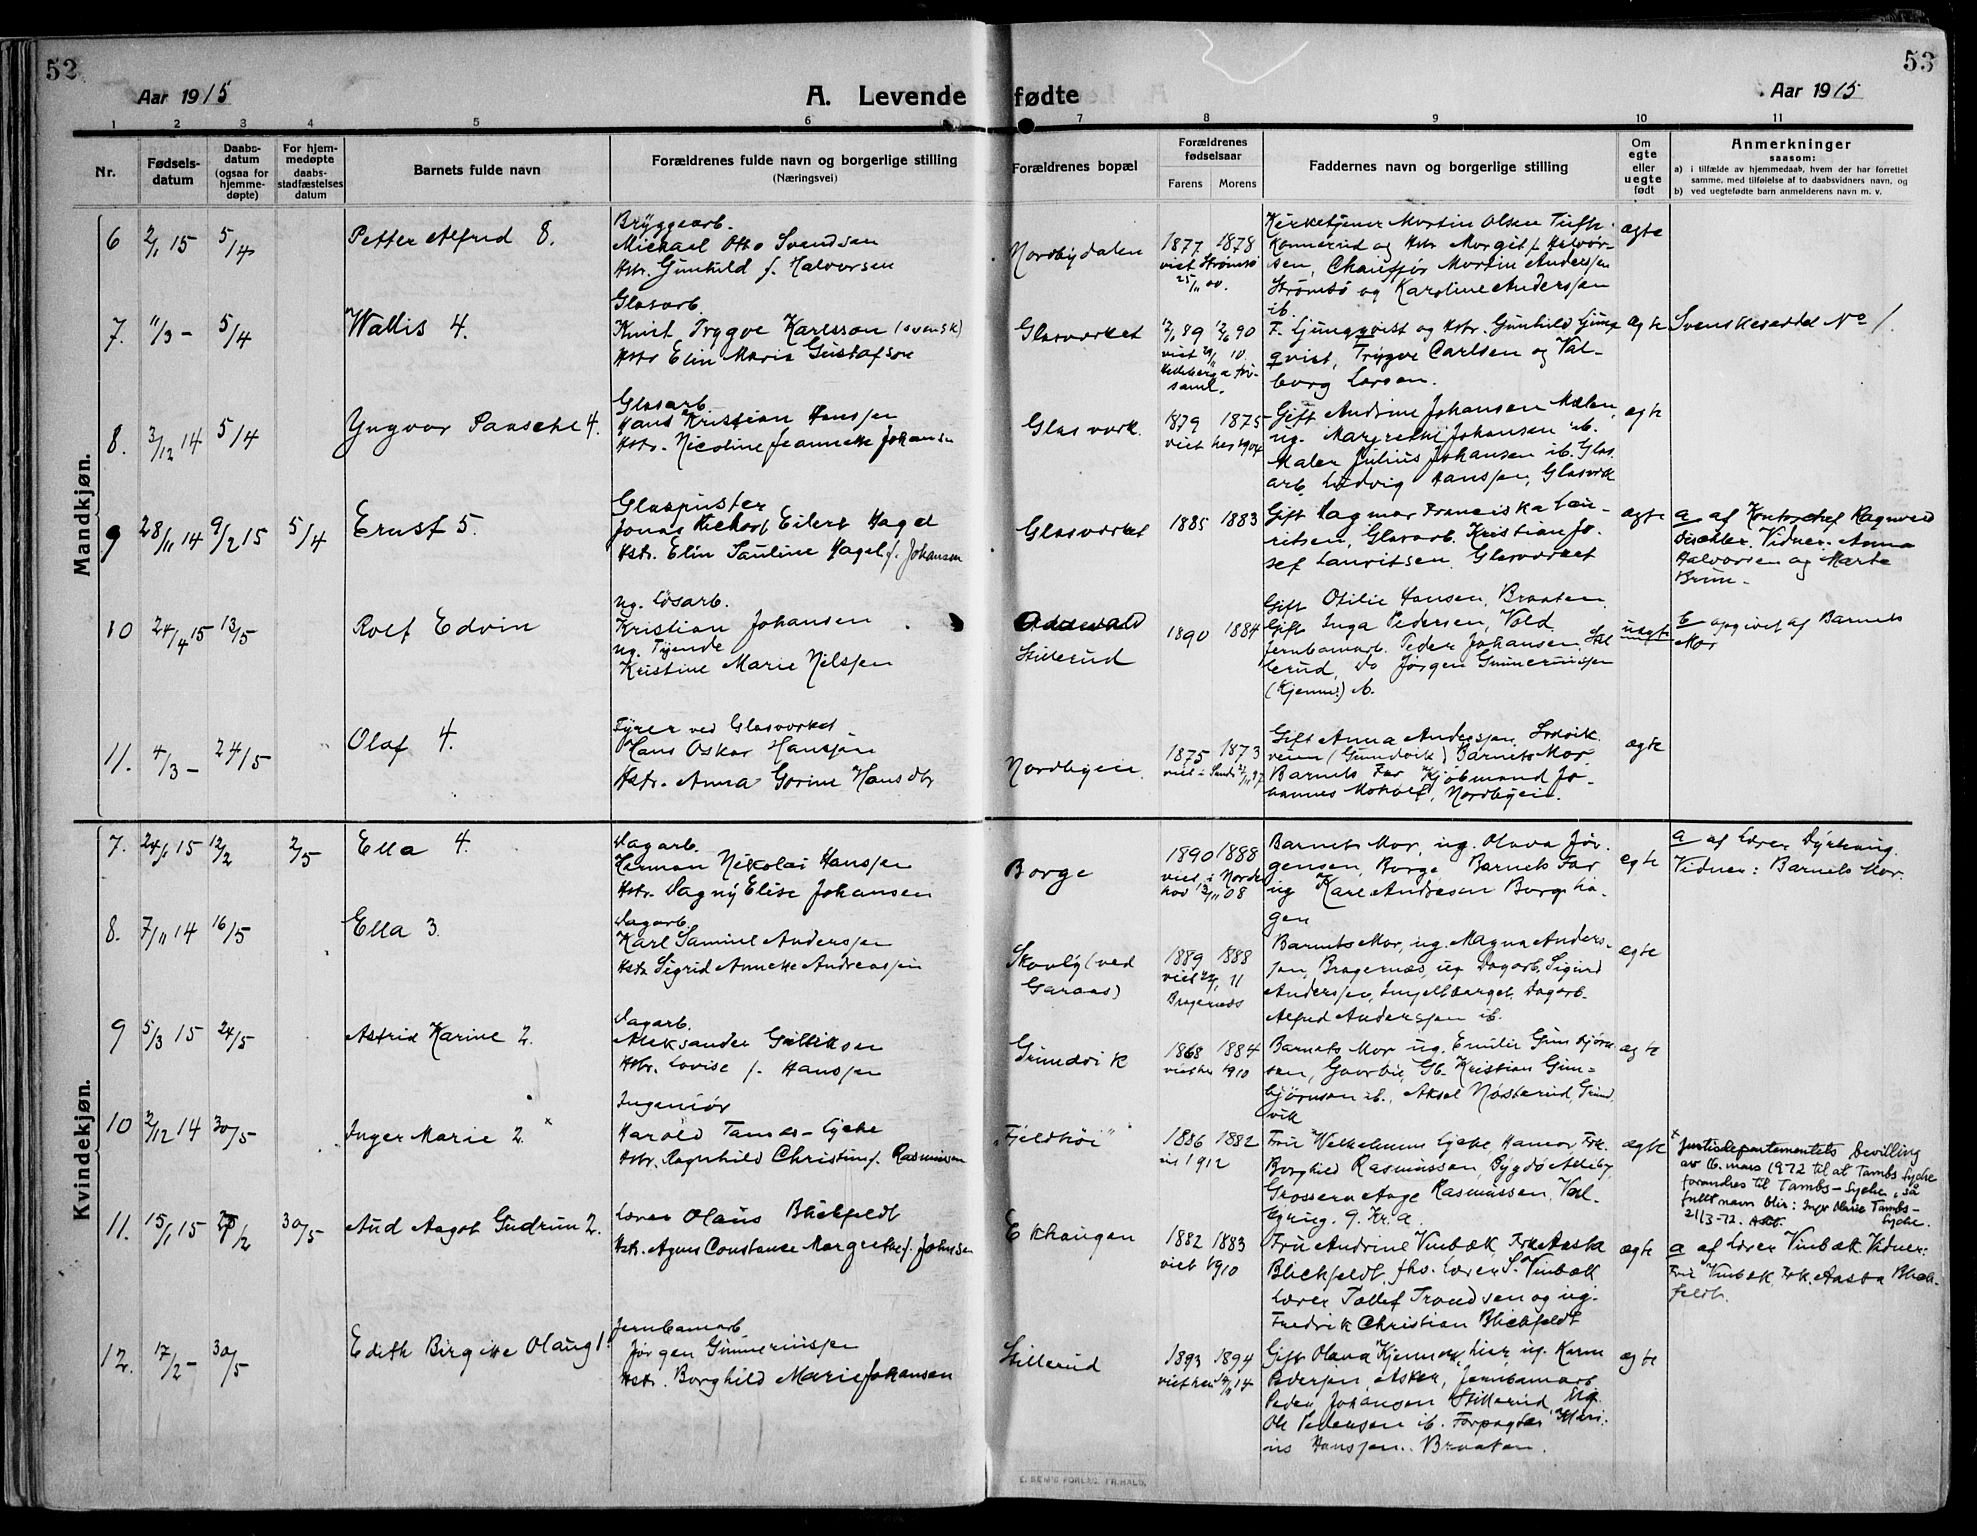 52
Aar 1915
A. Levende
fødte
Aar 1915
53
1 2 3 4 5 6 7 8 9 10 11
Nr.
Fødsels-
datum
Daabs-
datum
(ogsaa for
hjemme-
døpte)
For hjem-
medøpte
daabs-
stadfæstelses
datum
Barnets fulde navn
Forældrenes fulde navn og borgerlige stilling
(Næringsvei)
Forældrenes bopæl
Forældrenes
fødselsaar
Farens Morens
Faddernes navn og borgerlige stilling
Om
egte
eller
uegte
født
Anmerkninger
saasom:
a) i tilfælde av hjemmedaab, hvem der har forrettet
samme, med tilføielse af to daabsvidners navn, og
b) ved uegtefødte barn anmelderens navn m. v.
Mandkjøn.
6 2/1 15 5/4
Petter Alfred 8.
Bryggearb.
Michael Otto Svendsen
Hstr. Gunhild f. Halvorsen
Nordbydalen
1877 1878
viet Strømsø
25/11 00.
Kirketjener Martin Olsen Tufte
Konnerud og Hstr Margit f. Halvor-
sen, Chauffør Martin Andersen
Strømsø og Karoline Andersen
ib.
ægte
7. 11/3 - 5/4
Wallis 4.
Glasarb.
Knut Trygve Karlsson (svensk)
Hstr Elin Maria Gustafson
Glasverket
89 90
viet
F. Ljungqvist og Hstr. Gunhild Ljung
qvist, Trygve Carlsen og Val-
borg Larsen.
ægte
Svenskeseddel No 1.
8. 3/12 14 5/4
Yngvar Paasche 4.
Glasarb.
Hans Kristian Hansen
Hstr. Nicoline Jeannette Johansen
Glasverk.
1879 1875
viet her 1904
Gift Andrine Johansen Mælen,
ug. Margrethe Johansen ib.
Maler Julius Johansen ib. Glas.
arb. Ludvig Hansen, Glasverk
egte
9 28/11 14 9/2 15 5/4
Ernst 5.
Glaspuster
Jonas Richard Eilert Hagel
Hstr. Elin Pauline Hagel f. Johansen
Glasverket
1885 1883
Gift Dagmar Franciska Lau-
ritsen, Glasarb. Kristian Jo-
sef Lauritsen. Glasverket
ægte
a af Kontorchef Ragnvald
Vidner: Anna
Halvorsen og Marte
Bruun.
10 24/4 15 13/5
Rolf Edvin
ug. Løsarb.
Kristian Johansen
ug. Tjende
Kristine Marie Nilssen
Stillerud
1890 1884
Gift Otilie Hansen, Braaten
Gift Inga Pedersen, Vold
Jernbanearb. Peder Johansen, Stil
lerud, Do Jørgen Gunneriussen
(Kjenner) ib.
uegte
b opgivet af Barnets
Mor
11. 4/3 - 24/5
Olaf 4.
Fyrer ved Glasverket
Hans Oskar Hansen
Hstr. Anna Gorine Hansdtr
Nordbyeien.
1875 1873
Gift Anna Andersen, Svelvik
veien (Gundvik) Barnets Mor,
Barnets Far, Kjøbmand Jo-
hannes Moholt, Nordbyeie.
ægte
Kvindekjøn.
7. 24/1 15 12/2 2/5
Ella 4.
Dagarb.
Herman Nikolai Hansen
Hstr. Dagny Elise Johansen
Borge
1890 1888
viet i Norder
hov 13/11 08
Barnets Mor, ug. Olava Jør-
gensen, Borge, Barnets Far
ug Karl Andresen Borgeha-
gen
egte
a af Lærer Dyrhaug.
Vidner: Barnets Mor.
8. 7/11 14 16/5
Ella 3.
Dagarb.
Karl Samuel Andersen
Hstr Sigrid Annette Andreassen
Skovly (ved
Garaas)
1889 1888
viet 11
Bragernæs
Barnets Mor, ug. Magna Anders-
sen, Bragernæs, ug Dagarb. Sigurd
Andersen, Dagarb.
Alfred Andersen ib.
egte
9 5/3 15 24/5
Astrid Karine 2.
Dagarb.
Aleksander Gulliksen
Hstr. Lovise f. Hansen
Gundvik
1868 1884
viet her 1910
Barnets Mor ug. Emilie Gunbjørn
sen, Gb. Kristian Gun-
bjørnsen ib., Aksel Nøsterud, Gund
vik
ægte
10 2/12 14 30/5
Inger Marie 2. x
Ingeniør
Harold Tambs-Lyche
Hstr. Ragnhild Christin f. Rasmussen
„Fjeldhøi"
1886 1882
1912
Fru Wilhelmine Lyche, Hamar, Frk.
Borghild Rasmussen, Bygdø Allé
Grosserer Aage Rasmussen, Val-
kyrieg. 9. Kr.a.
ægte
x Justisdepartementets bevilling
av 16. mars 1972 til at Tambs Lyche
forandres til Tambs-Lyche, så
fullt navn blir: Inger Marie Tambs-
Lyche.
21/3-72.
11. 15/1 15 25/2 30/5
Aud Aagot Gudrun 2.
Lærer Olaus Blichfeldt
Hstr. Agnes Constance Margrethe f. Johnsen
Ekhaugen
1882 1883
viet 1910
Fru Andrine Vinbæk, Frk Aasta
Blichfeldt, fhv. Lærer S. Vinbæk
Lærer Tollef Trondsen og ug.
Fredrik Christian Blichfeldt
ægte
a af Lærer Vinbæk. Vidner:
Fru Vinbæk. Frk. Aasta Blich-
feldt.
12. 17/2 - 30/5
Edith Birgitte Olaug 1.
Jernbanearb.
Jørgen Gunneriussen
Hstr. Borghild Marie Johansen
Stillerud
1893 1894
viet her 14
Gift Olava Kjenner, hier, ug. Karen
Pedersen, Asker, Jernbanearb.
Peder Johansen Stillerud,
Ole Pedersen ib. Forpagter Mari-
us Hansen. Braaten.
egte
E. SEM'S FORLAG, FR.HALD.